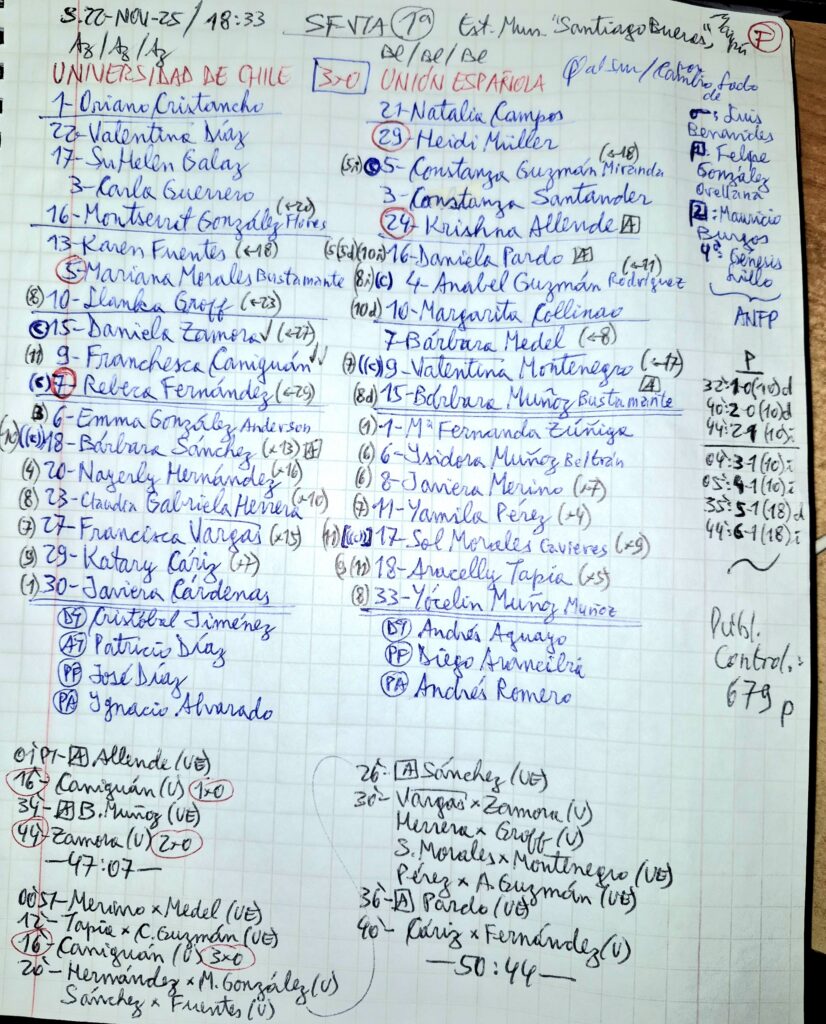 S.22-NOV-25/18:33 SFVTA 1ª Est. Mun. "Santiago Bueras", Maipú F
Az/Az/Az Be/Be/Be
UNIVERSIDAD DE CHILE 3x0 UNIÓN ESPAÑOLA
1-Oriana Cristancho
22-Valentina Díaz
17-SuHelen Galaz
3-Carla Guerrero
16-Montserrat González Flores (←20)
13-Karen Fuentes (←18)
5-Mariana Morales Bustamante
(8) 10-Ilanka Groff (←23)
(c) 15-Daniela Zamora ✓ (←27)
(11) 9-Franchesca Caniguán ✓✓
(c) 7-Rebeca Fernández (←29)
6-Emma González Anderson
(10) ((c)) 18-Bárbara Sánchez (×13) A
(4) 20-Nayerly Hernández (×16)
(8) 23-Claudia Gabriela Herrera (×10)
(7) 27-Francisca Vargas (×15)
(9) 29-Katary Cáriz (×7)
(1) 30-Javiera Cárdenas
DT Cristóbal Jiménez
AT Patricio Díaz
PF José Díaz
PA Ignacio Alvarado
21-Natalia Campos
29-Heidi Müller
(5i) (c) 5-Constanza Guzmán Miranda (←18)
3-Constanza Santander
24-Krishna Allende A
(5(5d)(10i) 16-Daniela Pardo A
(8i) (c) 4-Anabel Guzmán Rodríguez (←11)
(10d) 10-Margarita Collinao
7-Bárbara Medel (←8)
(7) ((c)) 9-Valentina Montenegro (←17)
(8d) 15-Bárbara Muñoz Bustamante A
(1) 1-Mª Fernanda Zúñiga
(6) 6-Ysidora Muñoz Beltrán
(6) 8-Javiera Merino (×7)
(7) 11-Yamila Pérez (×4)
(11) [(c)] 17-Sol Morales Cavieres (×9)
9 (11) 18-Aracelly Tapia (×5)
(8) 33-Yócelin Muñoz Muñoz
DT Andrés Aguayo
PF Diego Arancibia
PA Andrés Romero
por
/Cambio fado
de
: Luis
Benavides
1: Felipe
González
Orellana
2: Mauricio
Burgos
4º: Génesis
Lillo
ANFP
P
32':1-0(10)d
40':2-0(10)d
44':2-1(10)i
04':3-1(10)i
05':4-1(10)i
35':5-1(18)d
44':6-1(18)i
Públ.
Control.:
679 p
01'PT-A Allende (UE)
16'-Caniguán (U) 1x0
34-A B.Muñoz (UE)
44'-Zamora (U) 2x0
—47:07—
00'ST-Merino × Medel (UE)
12'-Tapia × C.Guzmán (UE)
16'-Caniguán (U) 3x0
20'-Hernández × M.González (U)
Sánchez × Fuentes (U)
26'-A Sánchez (UE)
30'-Vargas × Zamora (U)
Herrera × Groff (U)
S.Morales × Montenegro (UE)
Pérez × A.Guzmán (UE)
36'-A Pardo (UE)
40'-Cáriz × Fernández (U)
—50:44—